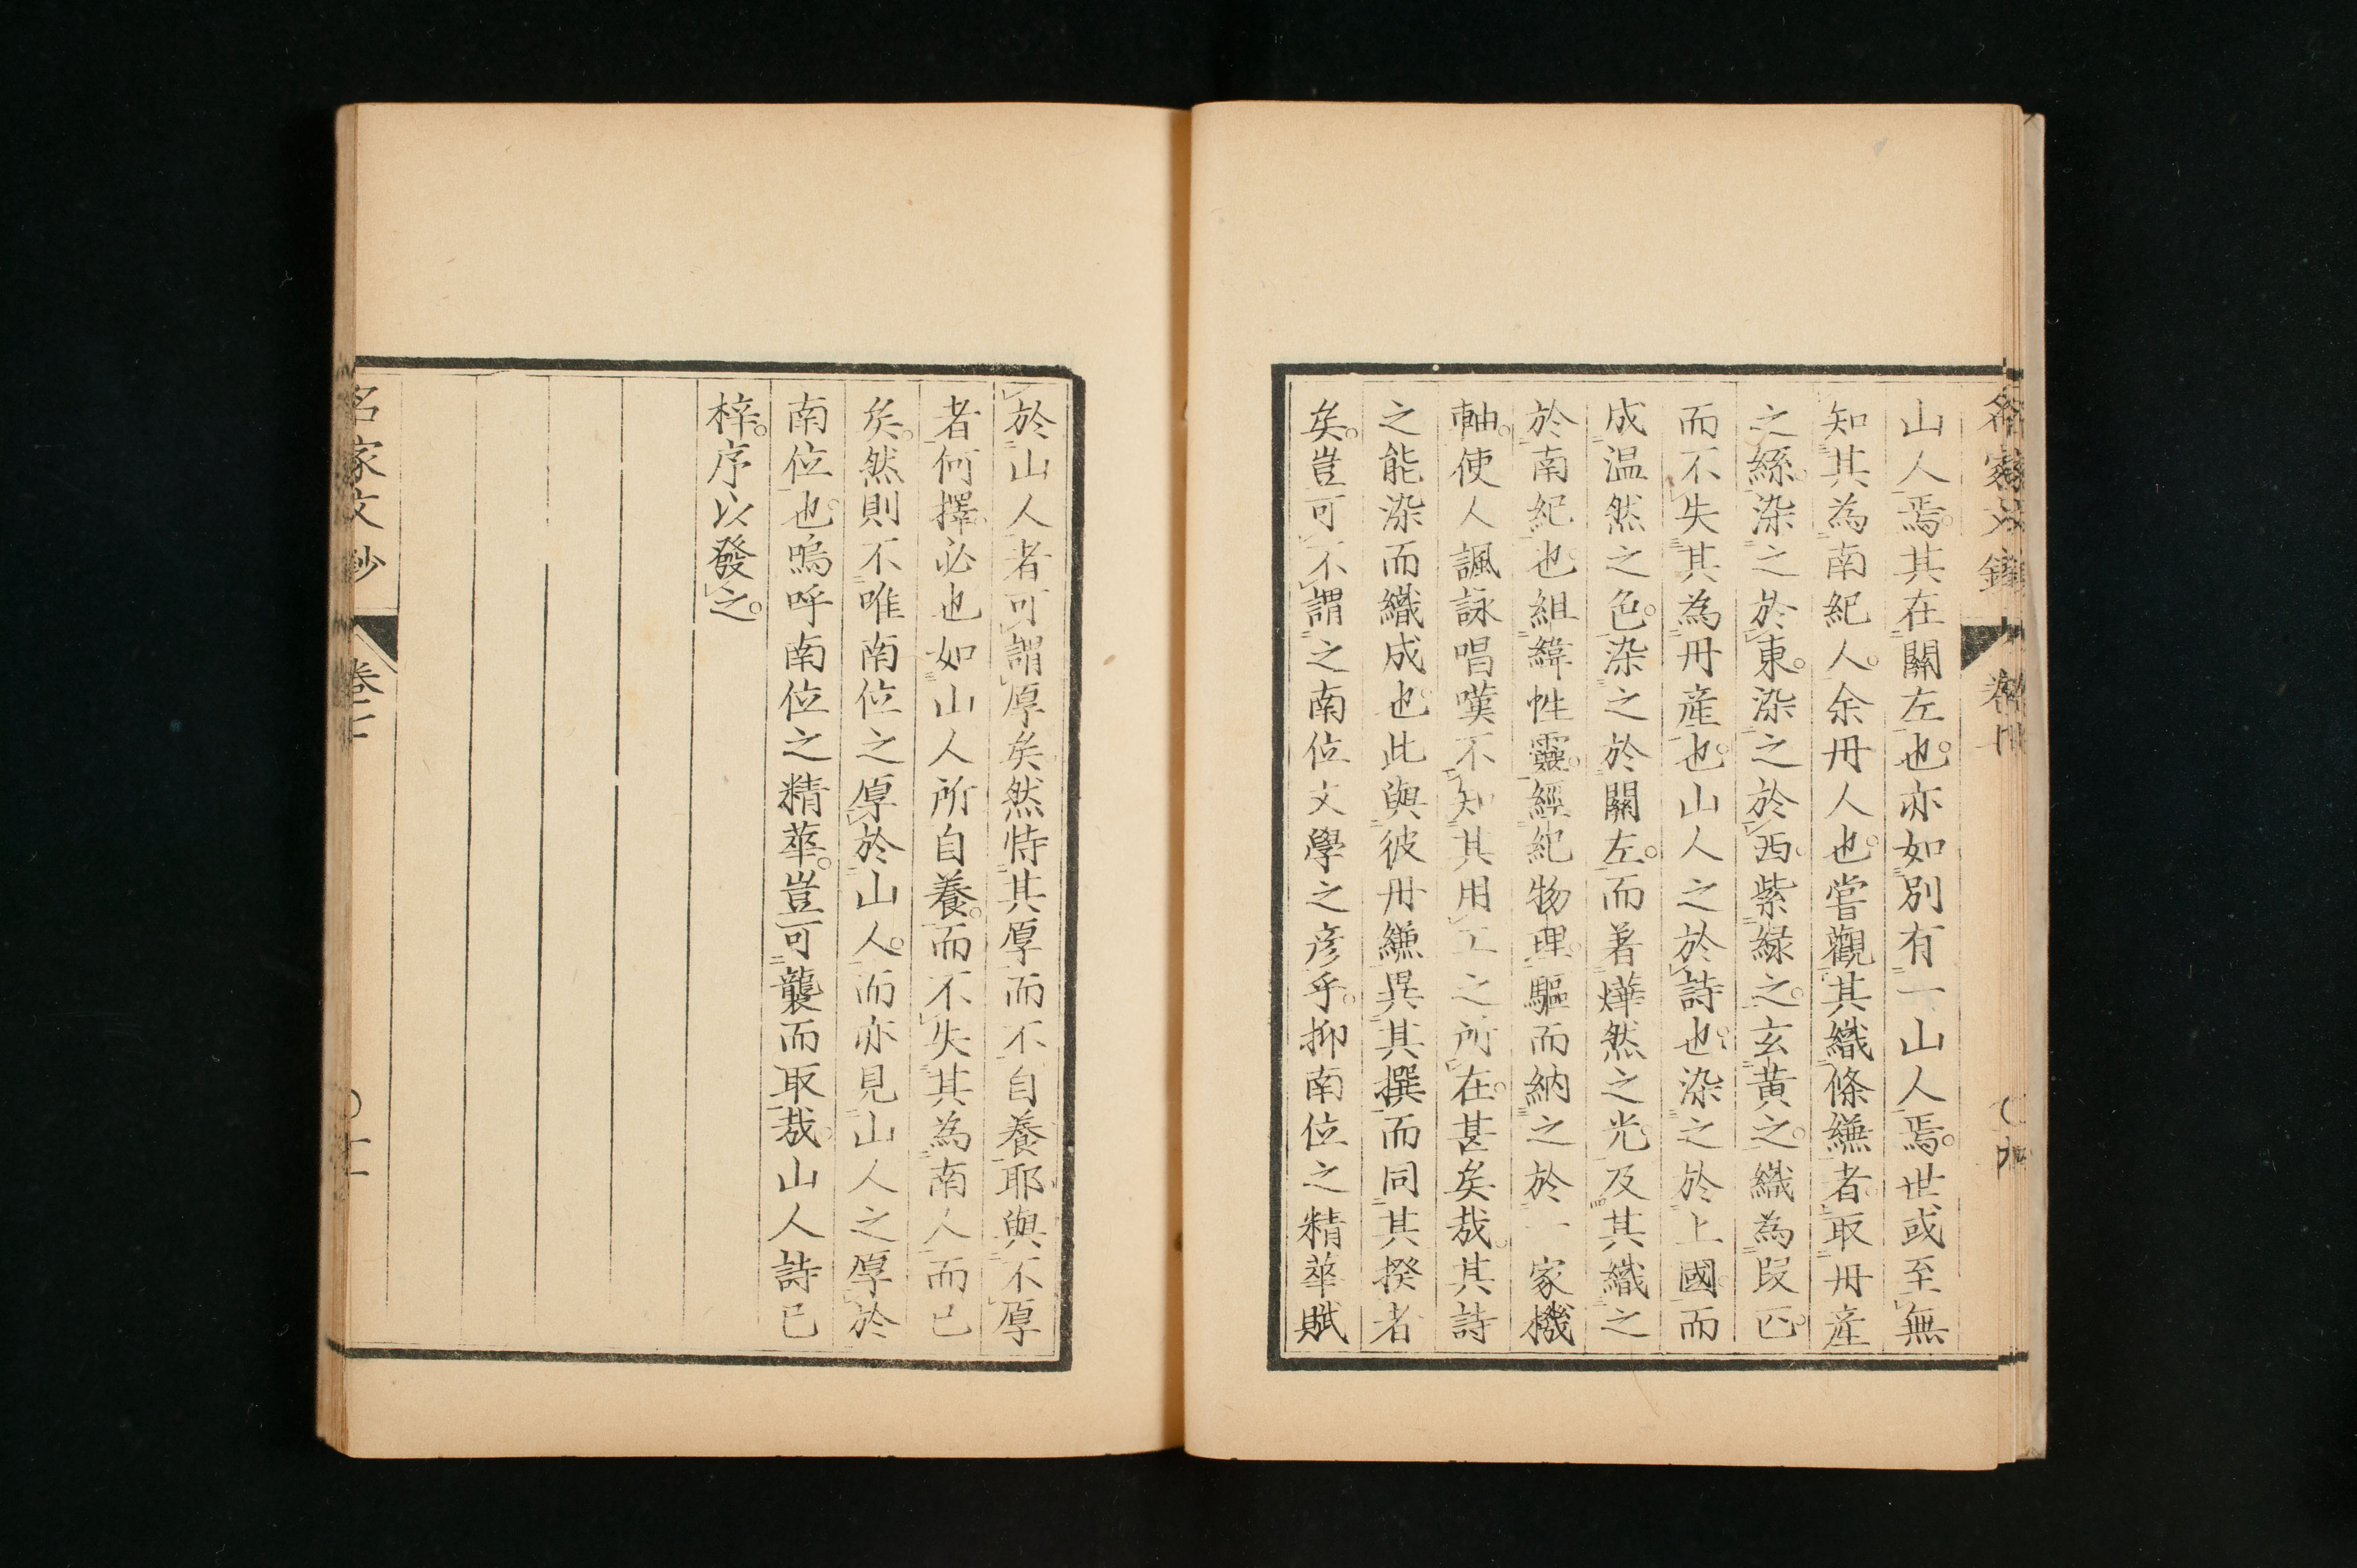 山人焉。其在關左也。亦如別有一山人焉。世或至無
知其為南紀人。余丹人也。嘗觀其織絛縑者。取丹産
之絲。染之於東。染之於西。紫綠之。玄黃之。織為段匹。
而不失其為丹産也。山人之於詩也。染之於上國。而
成温然之色。染之於關左。而著燁然之光。及其織之
於南紀也。組緯性靈。經紀物理。驅而納之於一家機
軸。使人諷詠唱嘆不知其用工之所在。甚矣哉。其詩
之能染而織成也。此與彼丹縑異其撰而同其揆者
矣。豈可不謂之南位文學之彦乎。抑南位之精華賦
於山人者可謂厚矣然恃其厚而不自養耶與不厚
者何擇必也如山人所自養。而不失其為南人而已
矣。然則不唯南位之厚於山人。而亦見山人之厚於
南位也。嗚呼南位之精華。豈可襲而取哉。山人詩已
梓。序以發之。
名家文抄
卷十二